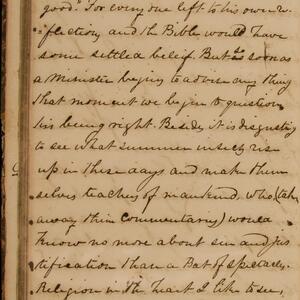 good". For every one left to his own re-
flection, and the Bible would have
some settled belief. But as soon as
a Minister begins to advise any thing
that moment we begin to question
his being right. Besides it is disgusting
to see what summer insects rise
up in these days and make them
selves teachers of mankind, who (take
away their Commentaries) would
know no more about sin and jus
tification than a Bat of spectacles.
Religion in the heart I like to see,